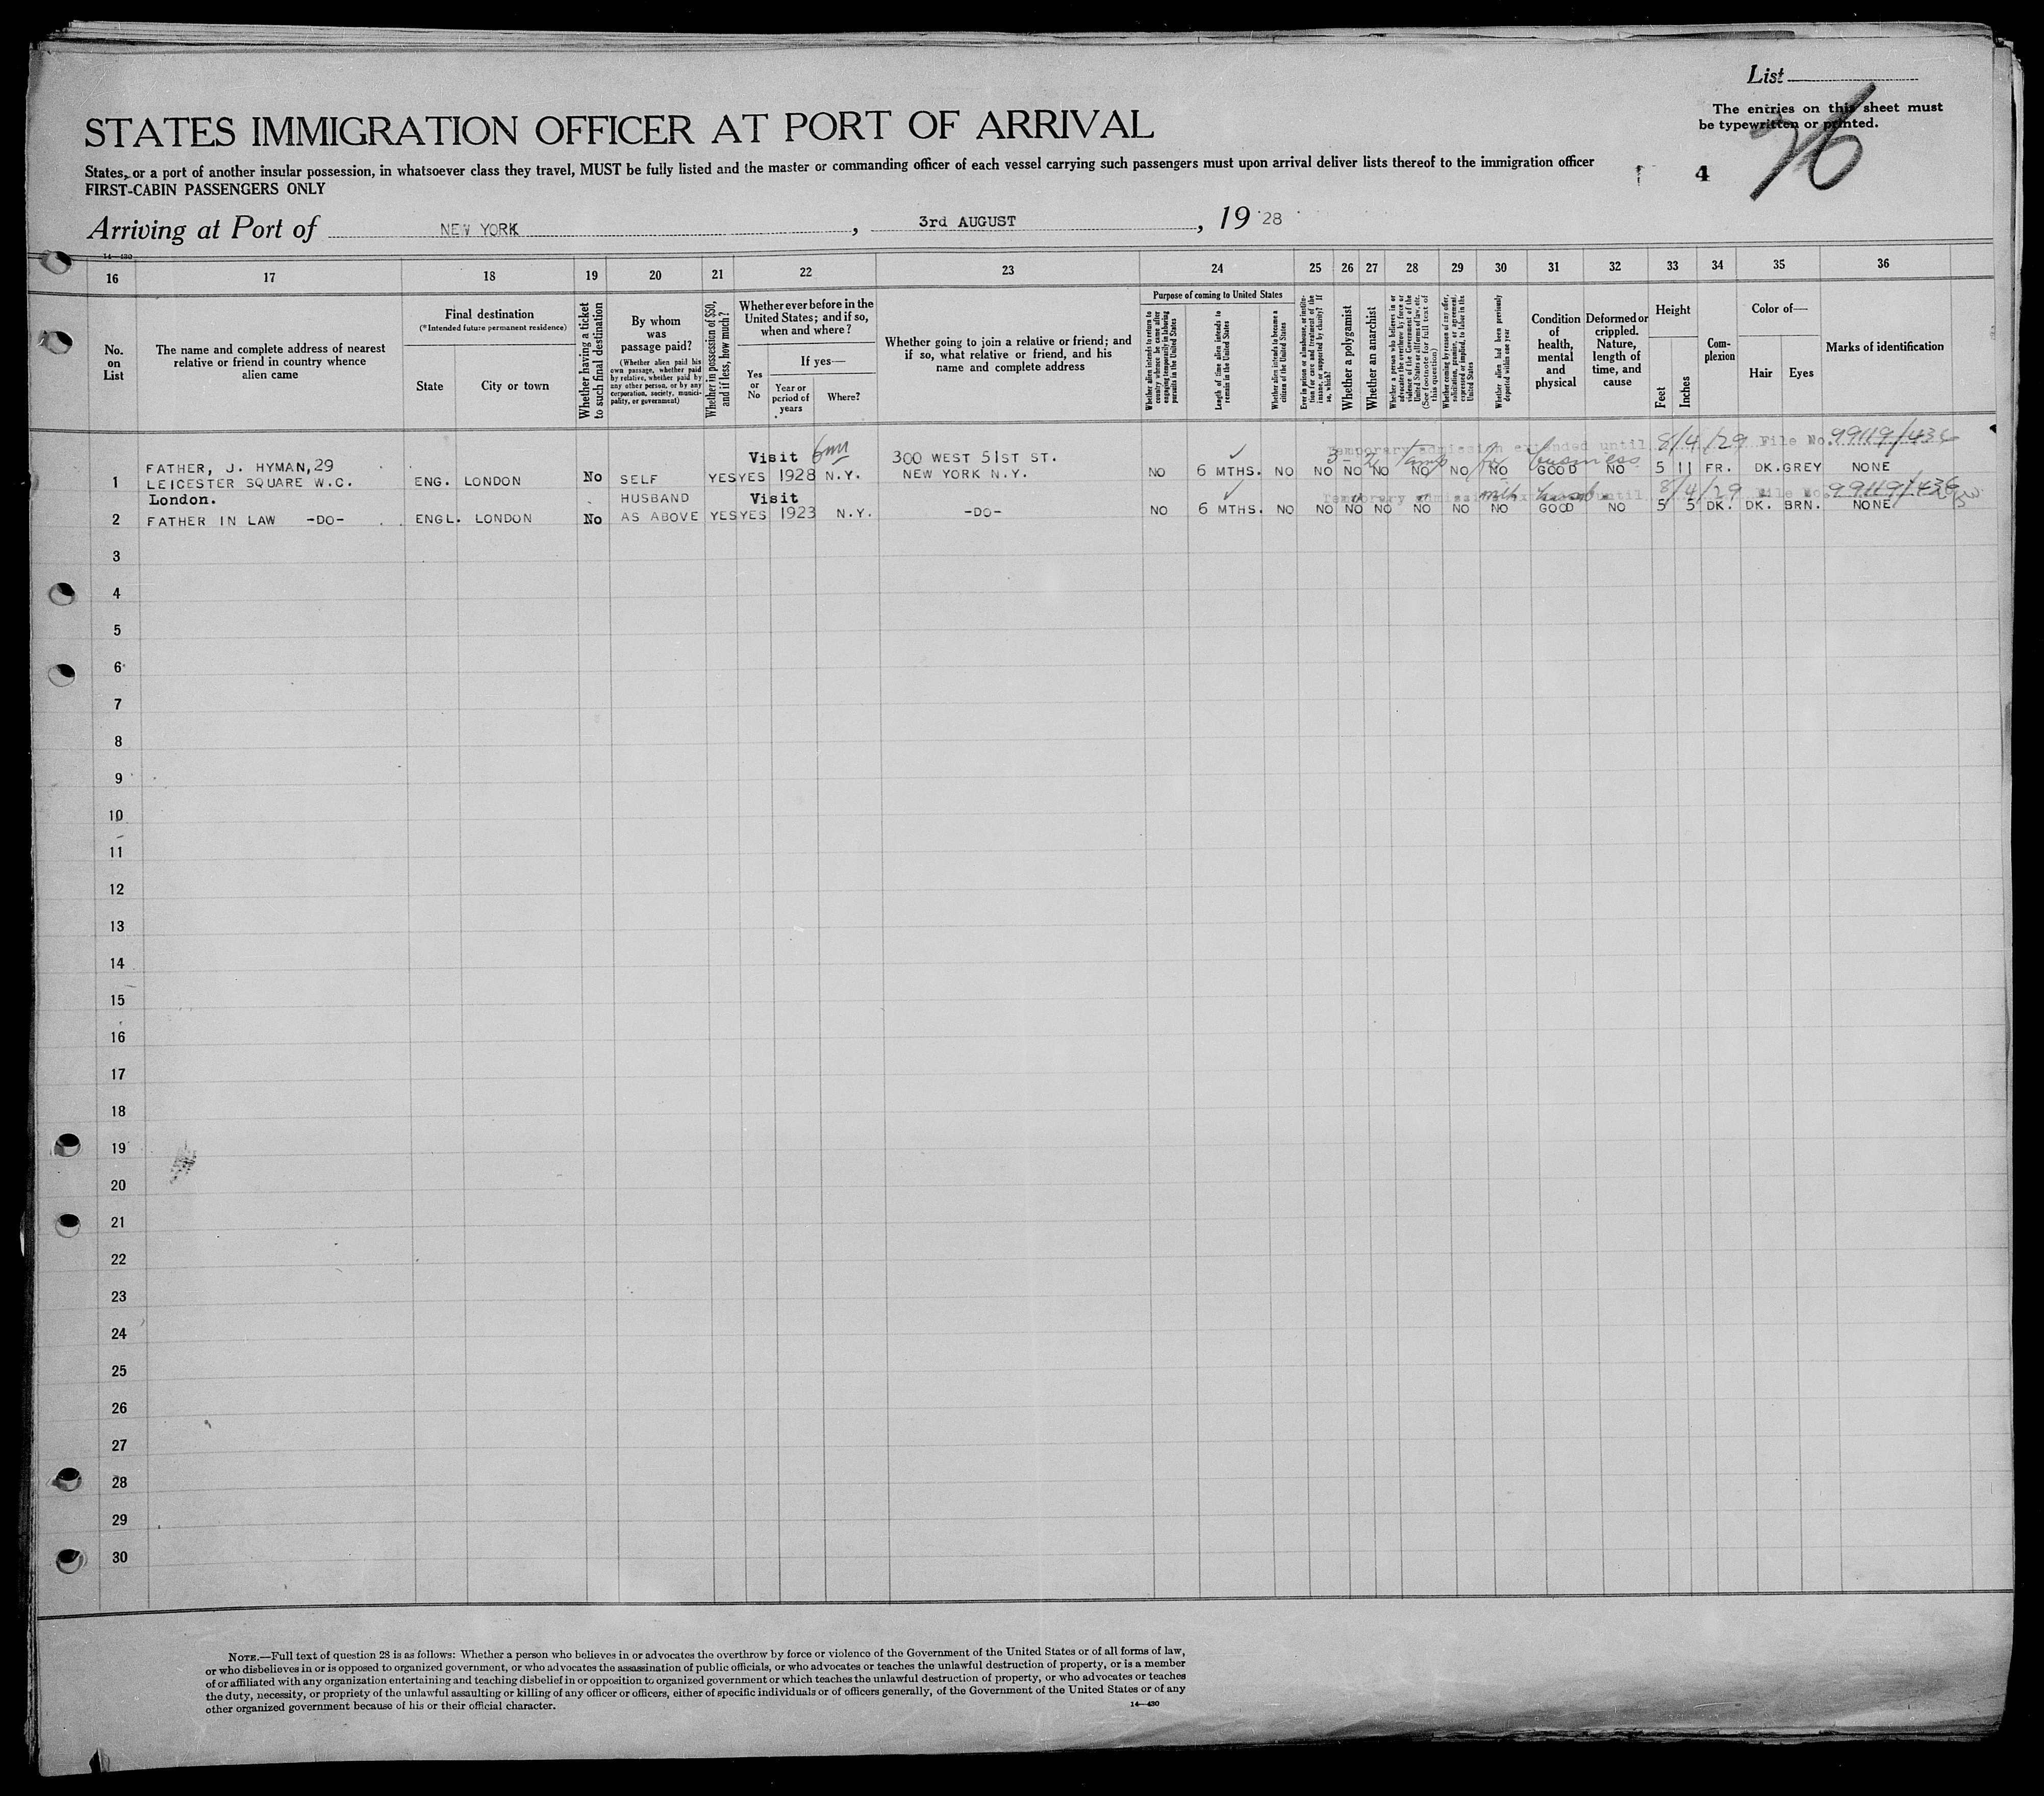 List
The entries on this sheet must
be typewritten or printed.
76
4
STATES IMMIGRATION OFFICER AT PORT OF ARRIVAL
States, or a port of another insular possession, in whatsoever class they travel, MUST be fully listed and the master or commanding officer of each vessel carrying such passengers must upon arrival deliver lists thereof to the immigration officer
FIRST-CABIN PASSENGERS ONLY
Arriving at Port of NEW YORK, 3rd AUGUST, 1928
14—430
16 17 18 19 20 21 22 23 24 25 26 27 28 29 30 31 32 33 34 35 36
No. on List
The name and complete address of nearest relative or friend in country whence alien came
Final destination
(*Intended future permanent residence)
State
City or town
Whether having a ticket to such final destination
By whom was passage paid?
(Whether alien paid his own passage, whether paid by relative, whether paid by any other person, or by any corporation, society, municipality, or government)
Whether in possession of $50, and if less, how much?
Whether ever before in the United States; and if so, when and where?
Yes or No
If yes—
Year or period of years
Where?
Whether going to join a relative or friend; and if so, what relative or friend, and his name and complete address
Purpose of coming to United States
Whether alien intends to return to country whence he came after engaging temporarily in laboring pursuits in the United States
Length of time alien intends to remain in the United States
Whether alien intends to become a citizen of the United States
Ever in prison or almshouse, or institution for care and treatment of the insane, or supported by charity? If so, which?
Whether a polygamist
Whether an anarchist
Whether a person who believes in or advocates the overthrow by force or violence of the Government of the United States or all forms of law, etc. (See footnote for full text of this question)
Whether coming by reason of any offer, solicitation, promise, or agreement, expressed or implied, to labor in the United States
Whether alien had been previously deported within one year
Condition of health, mental and physical
Deformed or crippled. Nature, length of time, and cause
Height
Feet
Inches
Complexion
Color of—
Hair
Eyes
Marks of identification
Visit 6m
Temporary admission extended until 8/4/29 File No. 99119/436
3 temp for business
1 FATHER, J. HYMAN, 29 LEICESTER SQUARE W.C. London. ENG. LONDON No SELF YES YES 1928 N.Y. 300 WEST 51ST ST. NEW YORK N.Y. NO 6 MTHS. NO NO NO NO NO NO NO GOOD NO 5 11 FR. DK. GREY NONE
Visit
Temporary admission extended until 8/4/29 File No. 99119/436
with husband
2 FATHER IN LAW -DO- ENGL. LONDON No HUSBAND AS ABOVE YES YES 1923 N.Y. -DO- NO 6 MTHS. NO NO NO NO NO NO NO GOOD NO 5 5 DK. DK. BRN. NONE
3
4
5
6
7
8
9
10
11
12
13
14
15
16
17
18
19
20
21
22
23
24
25
26
27
28
29
30
NOTE.—Full text of question 28 is as follows: Whether a person who believes in or advocates the overthrow by force or violence of the Government of the United States or of all forms of law,
or who disbelieves in or is opposed to organized government, or who advocates the assassination of public officials, or who advocates or teaches the unlawful destruction of property, or is a member
of or affiliated with any organization entertaining and teaching disbelief in or opposition to organized government or which teaches the unlawful destruction of property, or who advocates or teaches
the duty, necessity, or propriety of the unlawful assaulting or killing of any officer or officers, either of specific individuals or of officers generally, of the Government of the United States or of any
other organized government because of his or their official character.
14—430